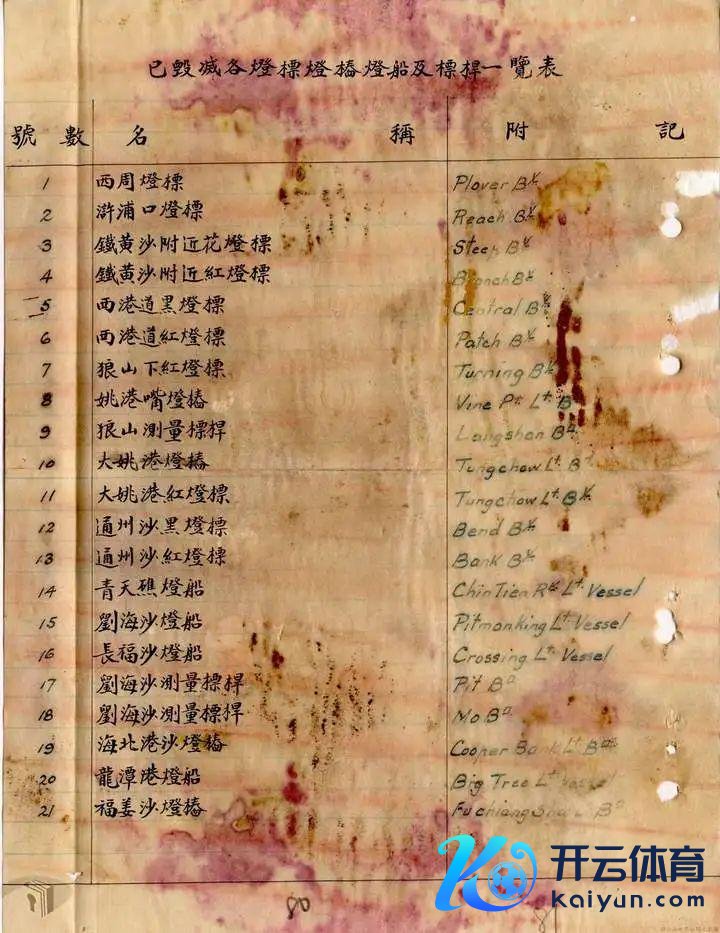 已毀滅各燈標燈樁燈船及標捍一覽表
號數 名稱 附記
1 西周燈標 Plover Bʸ
2 滸浦口燈標 Reach Bʸ
3 鐵黃沙附近花燈標 Steep Bʸ
4 鐵黃沙附近紅燈標 Branch Bʸ
5 西港道黑燈標 Central Bʸ
6 西港道紅燈標 Patch Bʸ
7 狼山下紅燈標 Turning Bʸ
8 姚港嘴燈樁 Vine Pᵗ Lᵗ B
9 狼山測量標捍 Langshan Bⁿ
10 大姚港燈樁 Tungchow Lᵗ Bⁿ
11 大姚港紅燈標 Tungchow Lᵗ Bʸ
12 通州沙黑燈標 Bend Bʸ
13 通州沙紅燈標 Bank Bʸ
14 青天礁燈船 Chin Tien Rᵏ Lᵗ Vessel
15 劉海沙燈船 Pitmanking Lᵗ Vessel
16 長福沙燈船 Crossing Lᵗ Vessel
17 劉海沙測量標捍 Pit Bⁿ
18 劉海沙測量標捍 Mo Bⁿ
19 海北港沙燈樁 Cooper Bank Lᵗ
20 龍潭港燈船 Big Tree Lᵗ Vessel
21 福姜沙燈樁 Fuchiang Bⁿ
80
开云体育
kaiyun.com